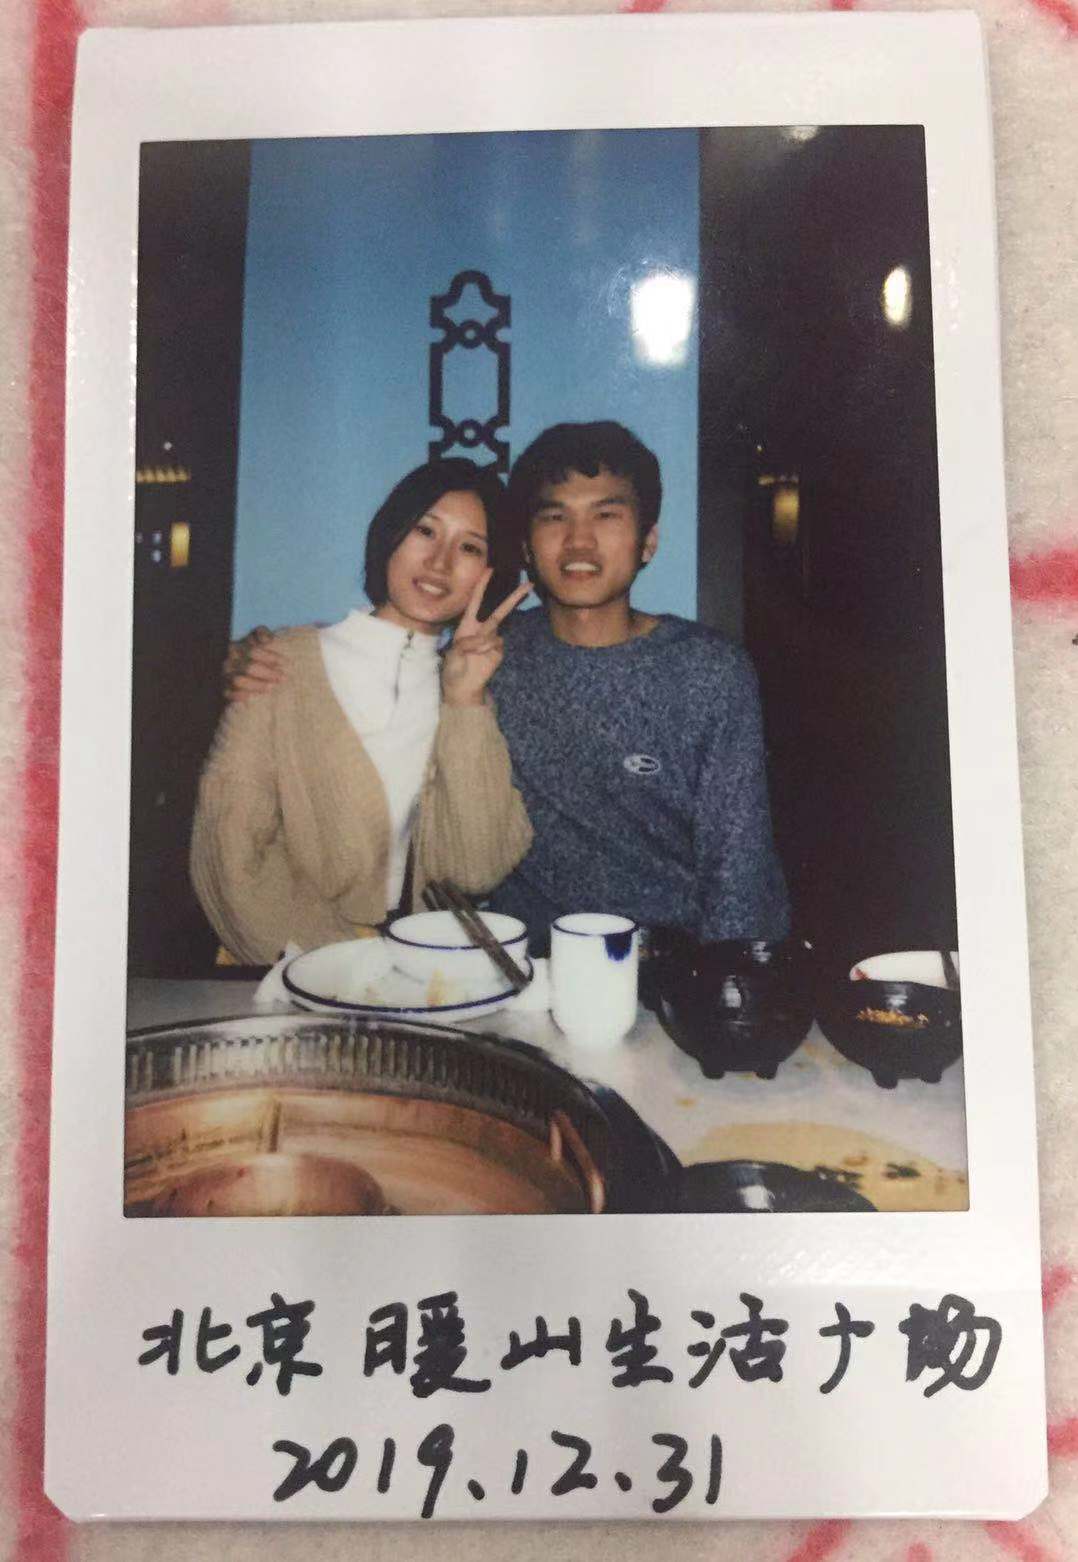 北京 暖山生活广场
2019.12.31